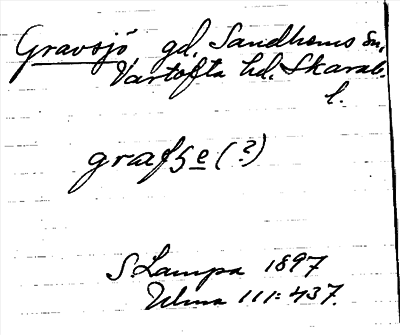 Gravsjö gd, Sandhems sn,
Vartofta hd. Skarab.
l.
grafse (?)
S Lampa 1897
Ulma 111:437.